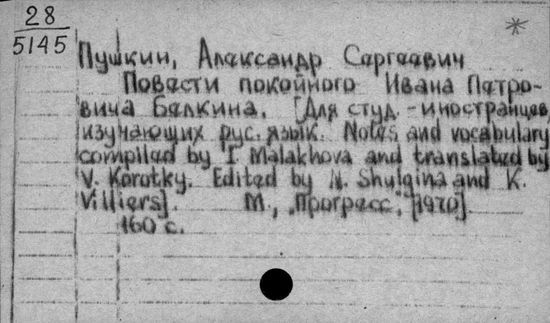 28
5145
Пушкин, Александр Сергеевич
Повести покойного Ивана Петро-
вича Белкина. [Для студ.-иностранцев,
изучающих рус. язык. Notes and vocabulary
compiled by I. Malakhova and translated by
V. Korotky. Edited by N. Shulgina and K.
Villiers]. М., „Прогресс", [1970].
160 с.